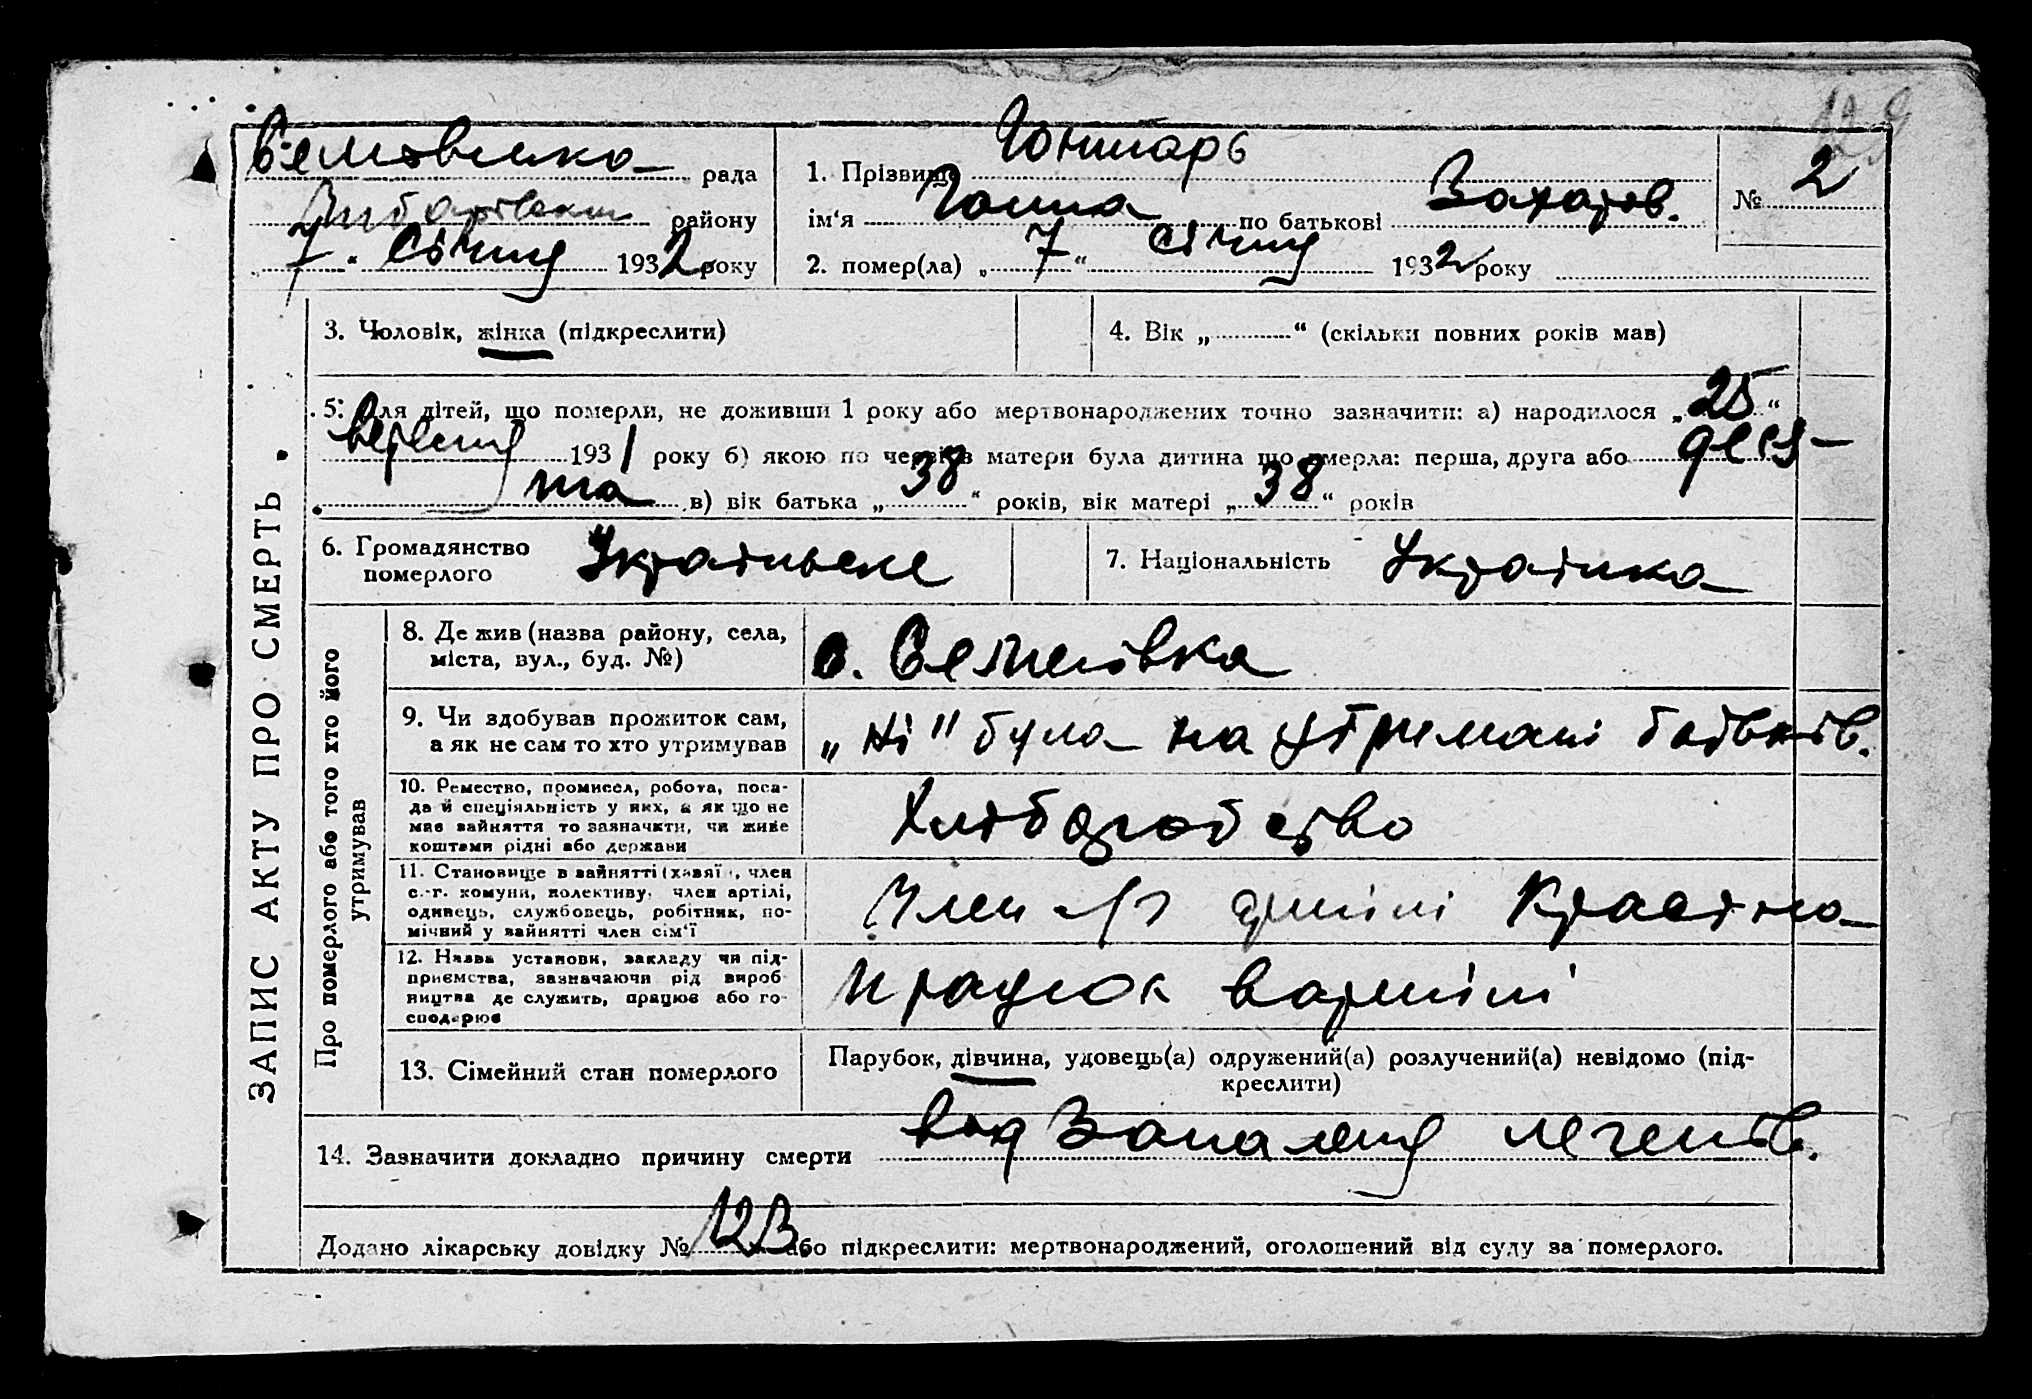 рада
району
„ 7 “ Січня 1932 року
1. Прізвище Гончарь
ім'я Ганна по батькові Захаров.
№ 2
2. помер(ла) „ 7 “ січня 1932 року
ЗАПИС АКТУ ПРО СМЕРТЬ
3. Чоловік, жінка (підкреслити)
4. Вік „ “ (скільки повних років мав)
5. Для дітей, що померли, не доживши 1 року або мертвонароджених точно зазначити: а) народилося „ 25 “
вересня 1931 року б) якою по черзі в матери була дитина що вмерла: перша, друга або деся-
та в) вік батька „ 38 “ років, вік матері „ 38 “ років
6. Громадянство
померлого
Українське
7. Національність Українка
Про померлого або того хто його
утримував
8. Де жив (назва району, села,
міста, вул., буд. №)
с. Семенівка
9. Чи здобував прожиток сам,
а як не сам то хто утримував
„Ні" була на утримані батьків.
10. Ремество, промисел, робота, поса-
да й спеціяльність у них, а як що не
мав зайняття то зазначити, чи живе
коштами рідні або держави
Хліборобство
11. Становище в зайнятті (хазяї, член
с.-г. комуни, колективу, член артілі,
одинець, службовець, робітник, по-
мічний у зайнятті член сім'ї
Член артілі
12. Назва установи, закладу чи під-
приємства, зазначаючи рід вироб-
ництва де служить, працює або го-
сподарює
вартілі
13. Сімейний стан померлого
Парубок, дівчина, удовець(а) одружений(а) розлучений(а) невідомо (під-
креслити)
14. Зазначити докладно причину смерти від Запалення легенів.
Додано лікарську довідку № 123 або підкреслити: мертвонароджений, оголошений від суду за померлого.